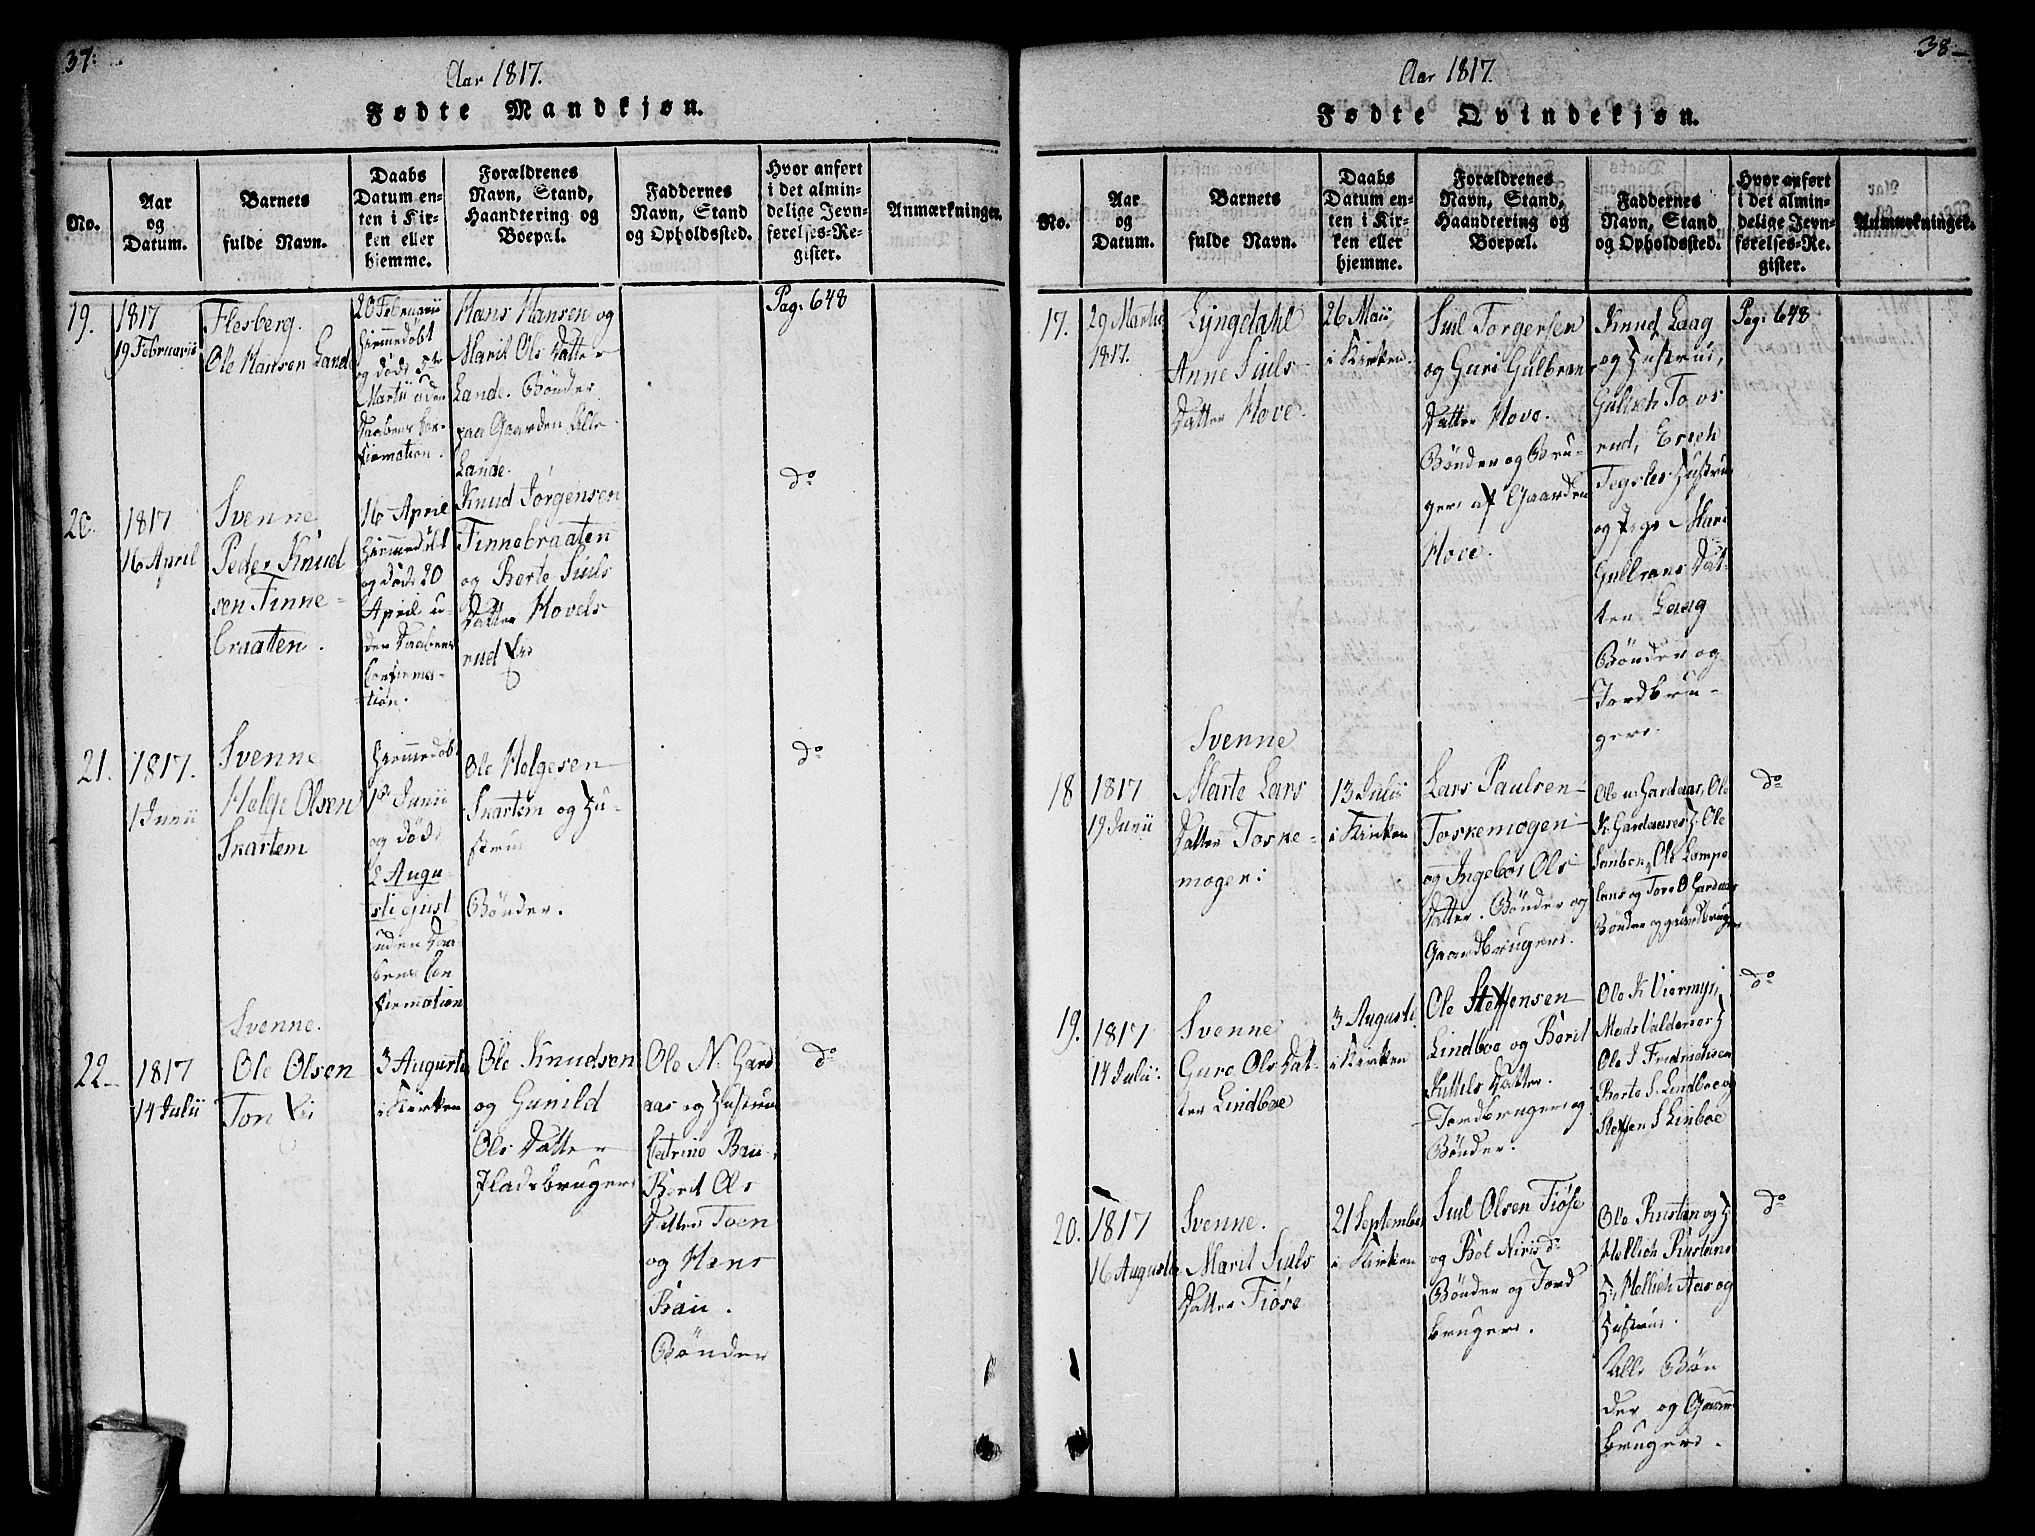 37:
Aar 1817.
Fødte Mandkjøn.
No.
Aar
og
Datum.
Barnets
fulde Navn.
Daabs
Datum en-
ten i Kir-
ken eller
hjemme.
Forældrenes
Navn, Stand,
Haandtering og
Boepæl.
Faddernes
Navn, Stand
og Opholdssted.
Hvor anført
i det almin-
delige Jevn-
førelses-Re-
gister.
Anmærkninger.
19.
1817
19 Februarii
Flesberg.
Ole Hansen Lande
20 Februarii
hiemmedøbt
og døde 5te
Martii uden
Daabens Con-
firmation.
Hans Hansen og
Marit Ols Datter
Lande. Bønder
paa Gaarden
Lande.
Pag. 648
20.
1817
16 April
Svenne
Peder Knud
sen Finne-
braatten.
16 April
hiemmedøbt
og døde 20
April u-
den Daabens
Confirma-
tion.
Knud Jørgensen
Finnebraaten
og Berte Siuls
Datter Hovels
rud
do
21.
1817.
1 Junii
Svenne
Helge Olsen
Skartem
hiemmedøbt
1 Junii
og døde
2 Augu-
sti
uden Daa-
bens Con
firmation
Ole Helgesen
Skartem og Hu-
strue
Bønder.
do
22
1817
14 Julii
Svenne.
Ole Olsen
3 Augusti
i Kirken
Ole Knudsen
og Gunild
Ols Datter
Pladsbruger
Ole N. Gard
aas og Hustrue
Catrine Bau
Berit Ols
Datter Toen
og Hans
Bau.
Bønder
do
38
Aar 1817.
Fødte Qvindekjøn.
No.
Aar
og
Datum.
Barnets
fulde Navn.
Daabs
Datum en-
ten i Kir-
ken eller
hjemme.
Forældrenes
Navn, Stand,
Haandtering og
Boepæl.
Faddernes
Navn, Stand
og Opholdssted.
Hvor anført
i det almin-
delige Jevn-
førelses-Re-
gister.
Anmærkninger.
17.
29 Martii
1817.
Lyngdahl
Anne Siuls
Datter Hove.
26 Maii
i Kirken.
Siul Torgersen
og Guri Gulbran
Datter Hove.
Bønder og Bru-
gere af Gaarden
Hove.
Knud Laag
og Hustrue,
rud, Erich
Hustrue
og Mari
Gulbrans Dat-
ter Laag
Bønder og
Jordbru-
gere.
Pag. 648
18
1817
19 Junii
Svenne
Marte Lars
Datter Toske-
mogen:
13 Julii
i Kirken
Lars Paulsen
Toskemogen
og Ingebor Ols
Datter. Bønder og
Gaardbrugere.
Ole Gardaas, Ole
K. Gardaas Ole
Ole
og Tore O Gardaas
Bønder og gaardbruger
do
19.
1817
14 Julii
Svenne
Guro Ols Dat-
ter Lindboe
3 Augusti
i Kirken
Ole Steffensen
Lindboe og Berit
Kittils Datter.
Jordbruger og
Bønder.
Ole K Viermyr,
Mads
Ole
Berte S. Lindboe og
Steffen S Linboe
do
20.
1817
16 Augusti
Svenne.
Marit Siuls
Datter Fiøse
21 September
i Kirken
Siul Olsen Fiøse
og Bøl Niris d:
Bønder og Jord
brugere.
Ole Rustan og H
Hellich Rustans
H. Hellich Aas og
Hustrue.
Alle Bøn
der og Gaard
brugere.
do